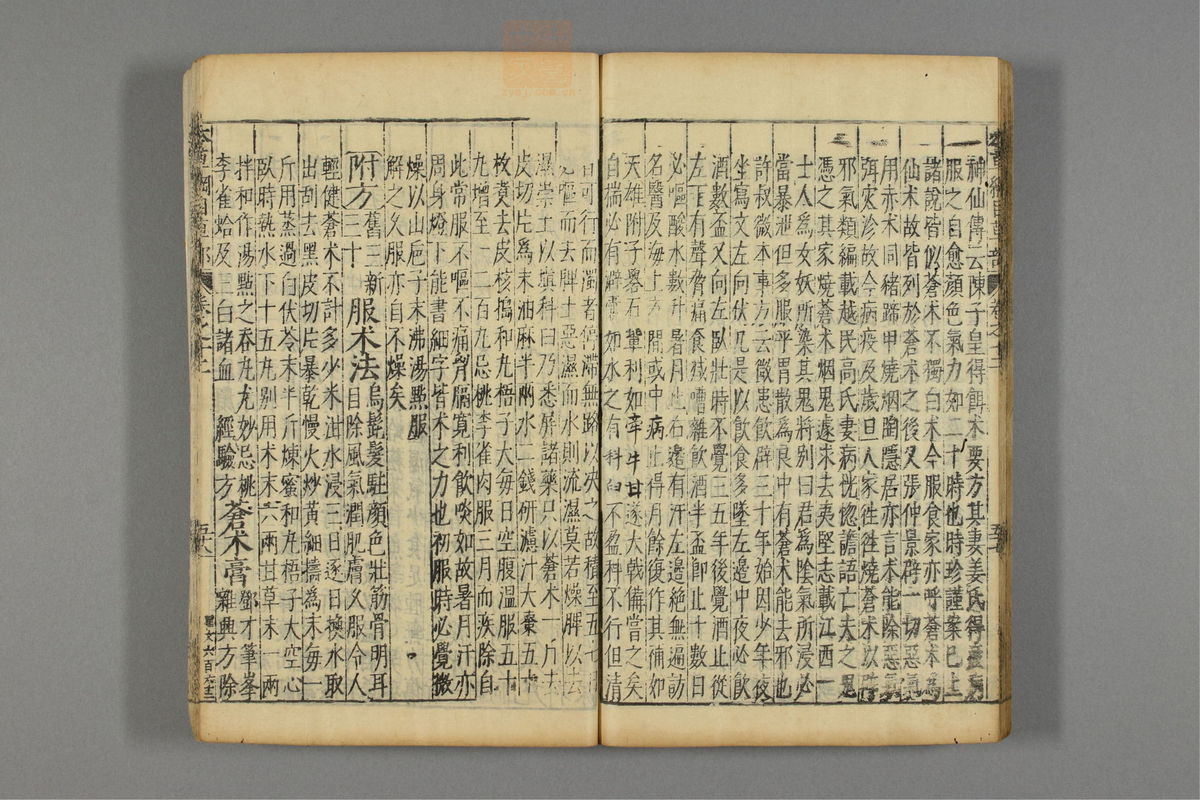 神仙傳云陳子皇得餌术要方其妻姜氏得疲病
服之自愈顏色氣力如二十時也時珍謹案已上
諸說皆似蒼术不獨白术今服食家亦呼蒼术為
仙术故皆列於蒼术之後又張仲景辟一切惡氣
用赤术同猪蹄甲燒烟陶隱居亦言术能除惡氣
弭灾沴故今病疫及歲旦人家往往燒蒼术以辟
邪氣類編載越民高氏妻病恍惚譫語亡夫之鬼
憑之其家燒蒼术烟鬼遽求去夷堅志載江西一
士人為女妖所染其鬼將別曰君為陰氣所浸必
當暴泄但多服平胃散為良中有蒼术能去邪也
許叔微本事方云微患飲癖三十年始因少年夜
坐寫文左向伏几是以飲食多墜左邊中夜必飲
酒數盃又向左臥壯時不覺三五年後覺酒止從
左下有聲脅痛食减嘈雜飲酒半盃即止十數日
必嘔酸水數升暑月止右邊有汗左邊絕無遍訪
名醫及海上方間或中病止得月餘復作其補如
天雄附子礬石 輩利如牽牛甘遂大戟備嘗之矣
自揣必有澼囊如水之有科臼不盈科不行但清
者可行而濁者停滯無路以决之故積至五七日
必嘔而去脾土惡濕而水則流濕莫若燥脾以去
濕崇土以填科臼乃悉屏諸藥只以蒼术一斤去
皮切片為末油麻半兩水二錢研濾汁大棗五十
枚煑去皮核搗和丸梧子大每日空腹溫服五十
丸增至一二百丸忌桃李雀肉服三月而疾除自
此常服不嘔不痛胷膈寛利飲啖如故暑月汗亦
周身燈下能書細字皆术之力也初服時必覺微
燥以山巵子末沸湯㸃服
解之久服亦自不燥矣
附方舊三新三十 服术法烏髭髮駐顏色壯筋骨明耳
目除風氣潤肥膚久服令人
輕健蒼术不計多少米泔水浸三日逐日換水取
出刮去黑皮切片暴乾慢火炒黃細擣為末每一
斤用蒸過白伏苓末半斤煉蜜和丸梧子大空心
臥時熱水下十五丸別用术末六兩甘草末一兩
拌和作湯㸃之吞丸尤妙忌桃
李雀蛤及三白諸血 鄧才筆峯
經驗方 蒼术膏雜興方除
本草綱目草部
卷之十二